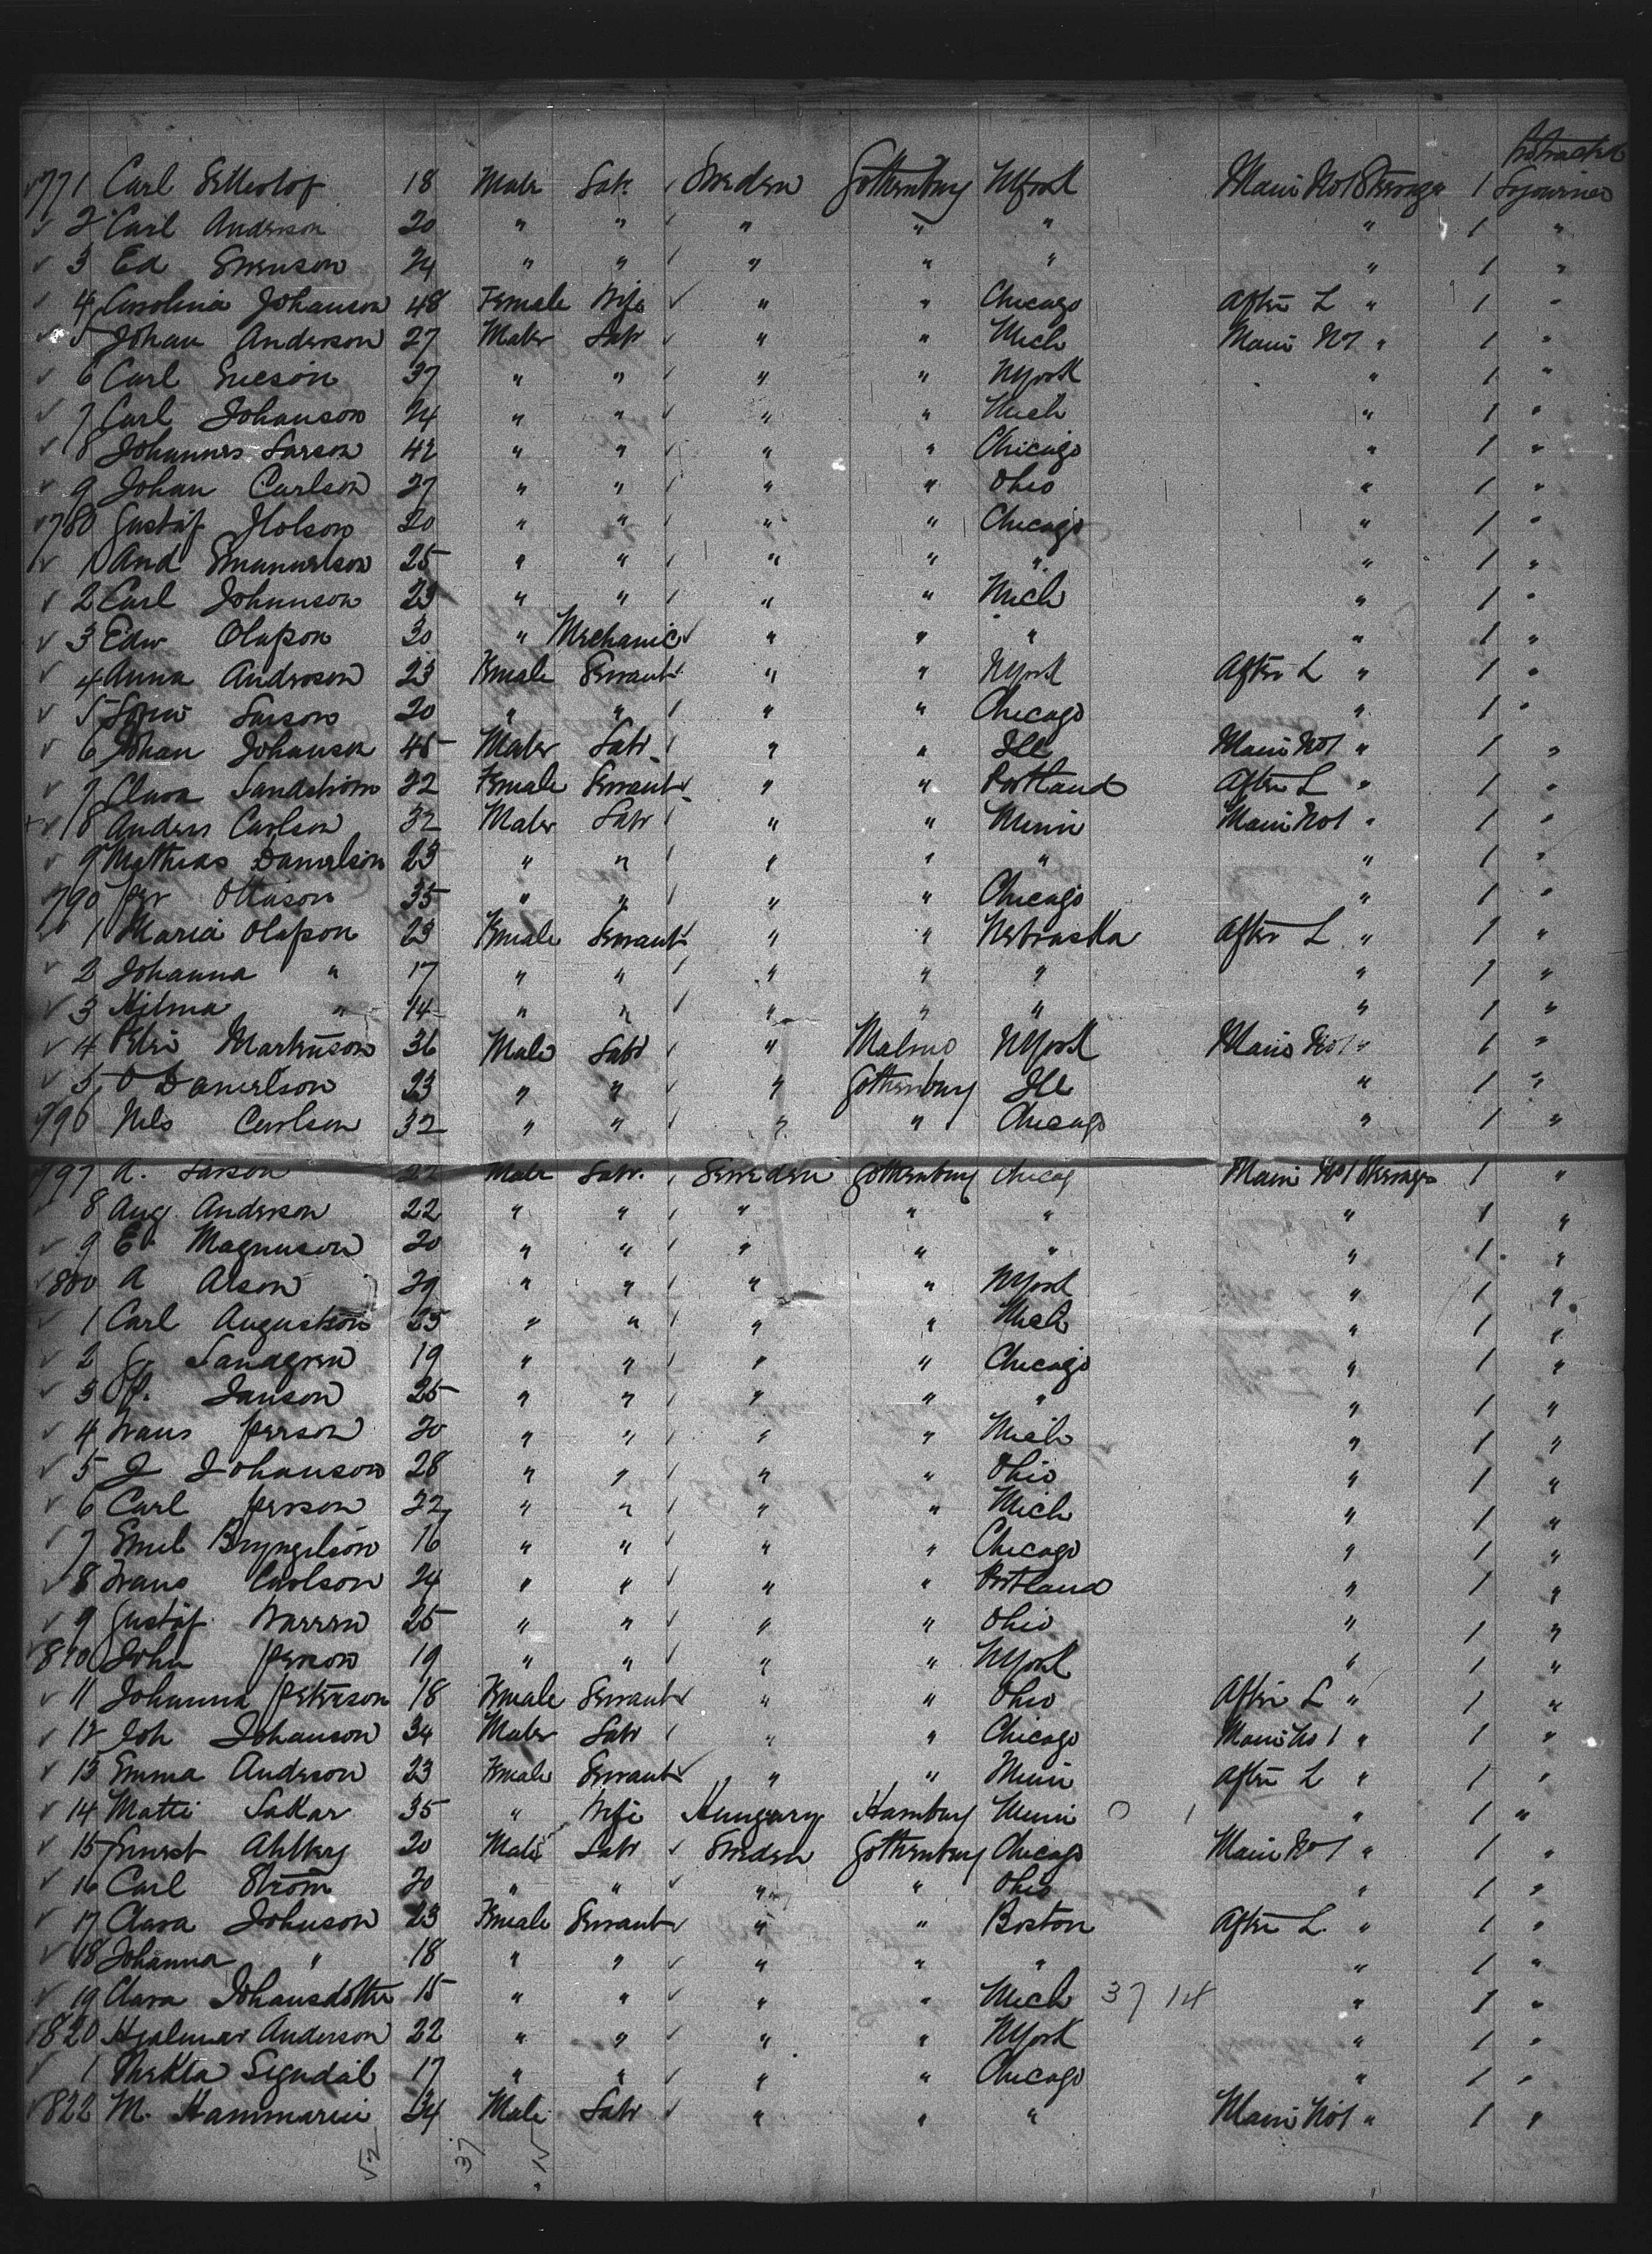 Protracted
771 Carl Setterlof 18 Male Labr Sweden Gothenburg NYork Main No1 Steerage 1 Sojourner
2 Carl Anderson 20 " " " " " " 1 "
3 Ed Svenson 24 " " " " " " 1 "
4 Carolina Johanson 48 Female Wife " " Chicago After L " 1 "
5 Johan Anderson 27 Male Labr " " Mich Main No1 " 1 "
6 Carl Ericson 37 " " " " NYork " 1 "
7 Carl Johanson 24 " " " " Mich " 1 "
8 Johannes Larson 42 " " " " Chicago " 1 "
9 Johan Carlson 27 " " " " Ohio " 1 "
780 Gustaf 20 " " " " Chicago " 1 "
1 And Emanuelson 25 " " " " " " 1 "
2 Carl Johanson 23 " " " " Mich " 1 "
3 Edw Olafson 30 " Mechanic " " " " 1 "
4 Anna Anderson 23 Female Servant " " NYork After L " 1 "
5 Larson 20 " " " " Chicago " 1 "
6 Johan Johanson 45 Male Labr " " Ill Main No1 " 1 "
7 Clara Sandstrom 22 Female Servant " " Portland After L " 1 "
8 Anders Carlson 32 Male Labr " " Minn Main No1 " 1 "
9 Mathias Danielson 23 " " " " " " 1 "
790 Per Ottason 35 " " " " Chicago " 1 "
1 Maria Olafson 23 Female Servant " " Nebraska After L " 1 "
2 Johanna " 17 " " " " " " 1 "
3 Hilma " 14 " " " " " " 1 "
4 Peter Martinson 36 Male Labr " Malmo NYork Main No1 " 1 "
5 O Danielson 23 " " " Gothenburg Ill " 1 "
796 Nels Carlson 32 " " " " Chicago " 1 "
797 A. Larson 22 Male Labr. Sweden Gothenburg Chicag Main No1 Steerage 1 "
8 Aug. Anderson 22 " " " " " " 1 "
9 E. Magnuson 20 " " " " " " 1 "
800 A Alson 29 " " " " NYork " 1 "
1 Carl Augustson 25 " " " " Mich " 1 "
2 Sandgren 19 " " " " Chicago " 1 "
3 Janson 25 " " " " " " 1 "
4 Frans Person 20 " " " " Mich " 1 "
5 J Johanson 28 " " " " Ohio " 1 "
6 Carl Person 22 " " " " Mich " 1 "
7 Emil Bryngelson 16 " " " " Chicago " 1 "
8 Frans Carlson 24 " " " " Portland " 1 "
9 Gustaf Warren 25 " " " " Ohio " 1 "
810 John Person 19 " " " " NYork " 1 "
11 Johanna Peterson 18 Female Servant " " Ohio After L " 1 "
12 Joh Johanson 34 Male Labr " " Chicago Main No 1 " 1 "
13 Emma Anderson 23 Female Servant " " Minn After L " 1 "
14 Matti Sakar 35 " Wife Hungary Hamburg Minn 0 1 " 1 "
15 Ernest Ahlberg 20 Male Labr Sweden Gothenburg Chicago Main No1 " 1 "
16 Carl Strom 20 " " " " Ohio " 1 "
17 Clara Johnson 23 Female Servant " " Boston After L. " 1 "
18 Johanna " 18 " " " " " " 1 "
19 Clara Johansdotter 15 " " " " Mich 37 14 " 1 "
820 Hjalmar Anderson 22 " " " " NYork " 1 "
1 Thekla Segudal 17 " " " " Chicago " 1 "
822 M. 24 Male Labr " " " Main No1 " 1 "
52 37 15